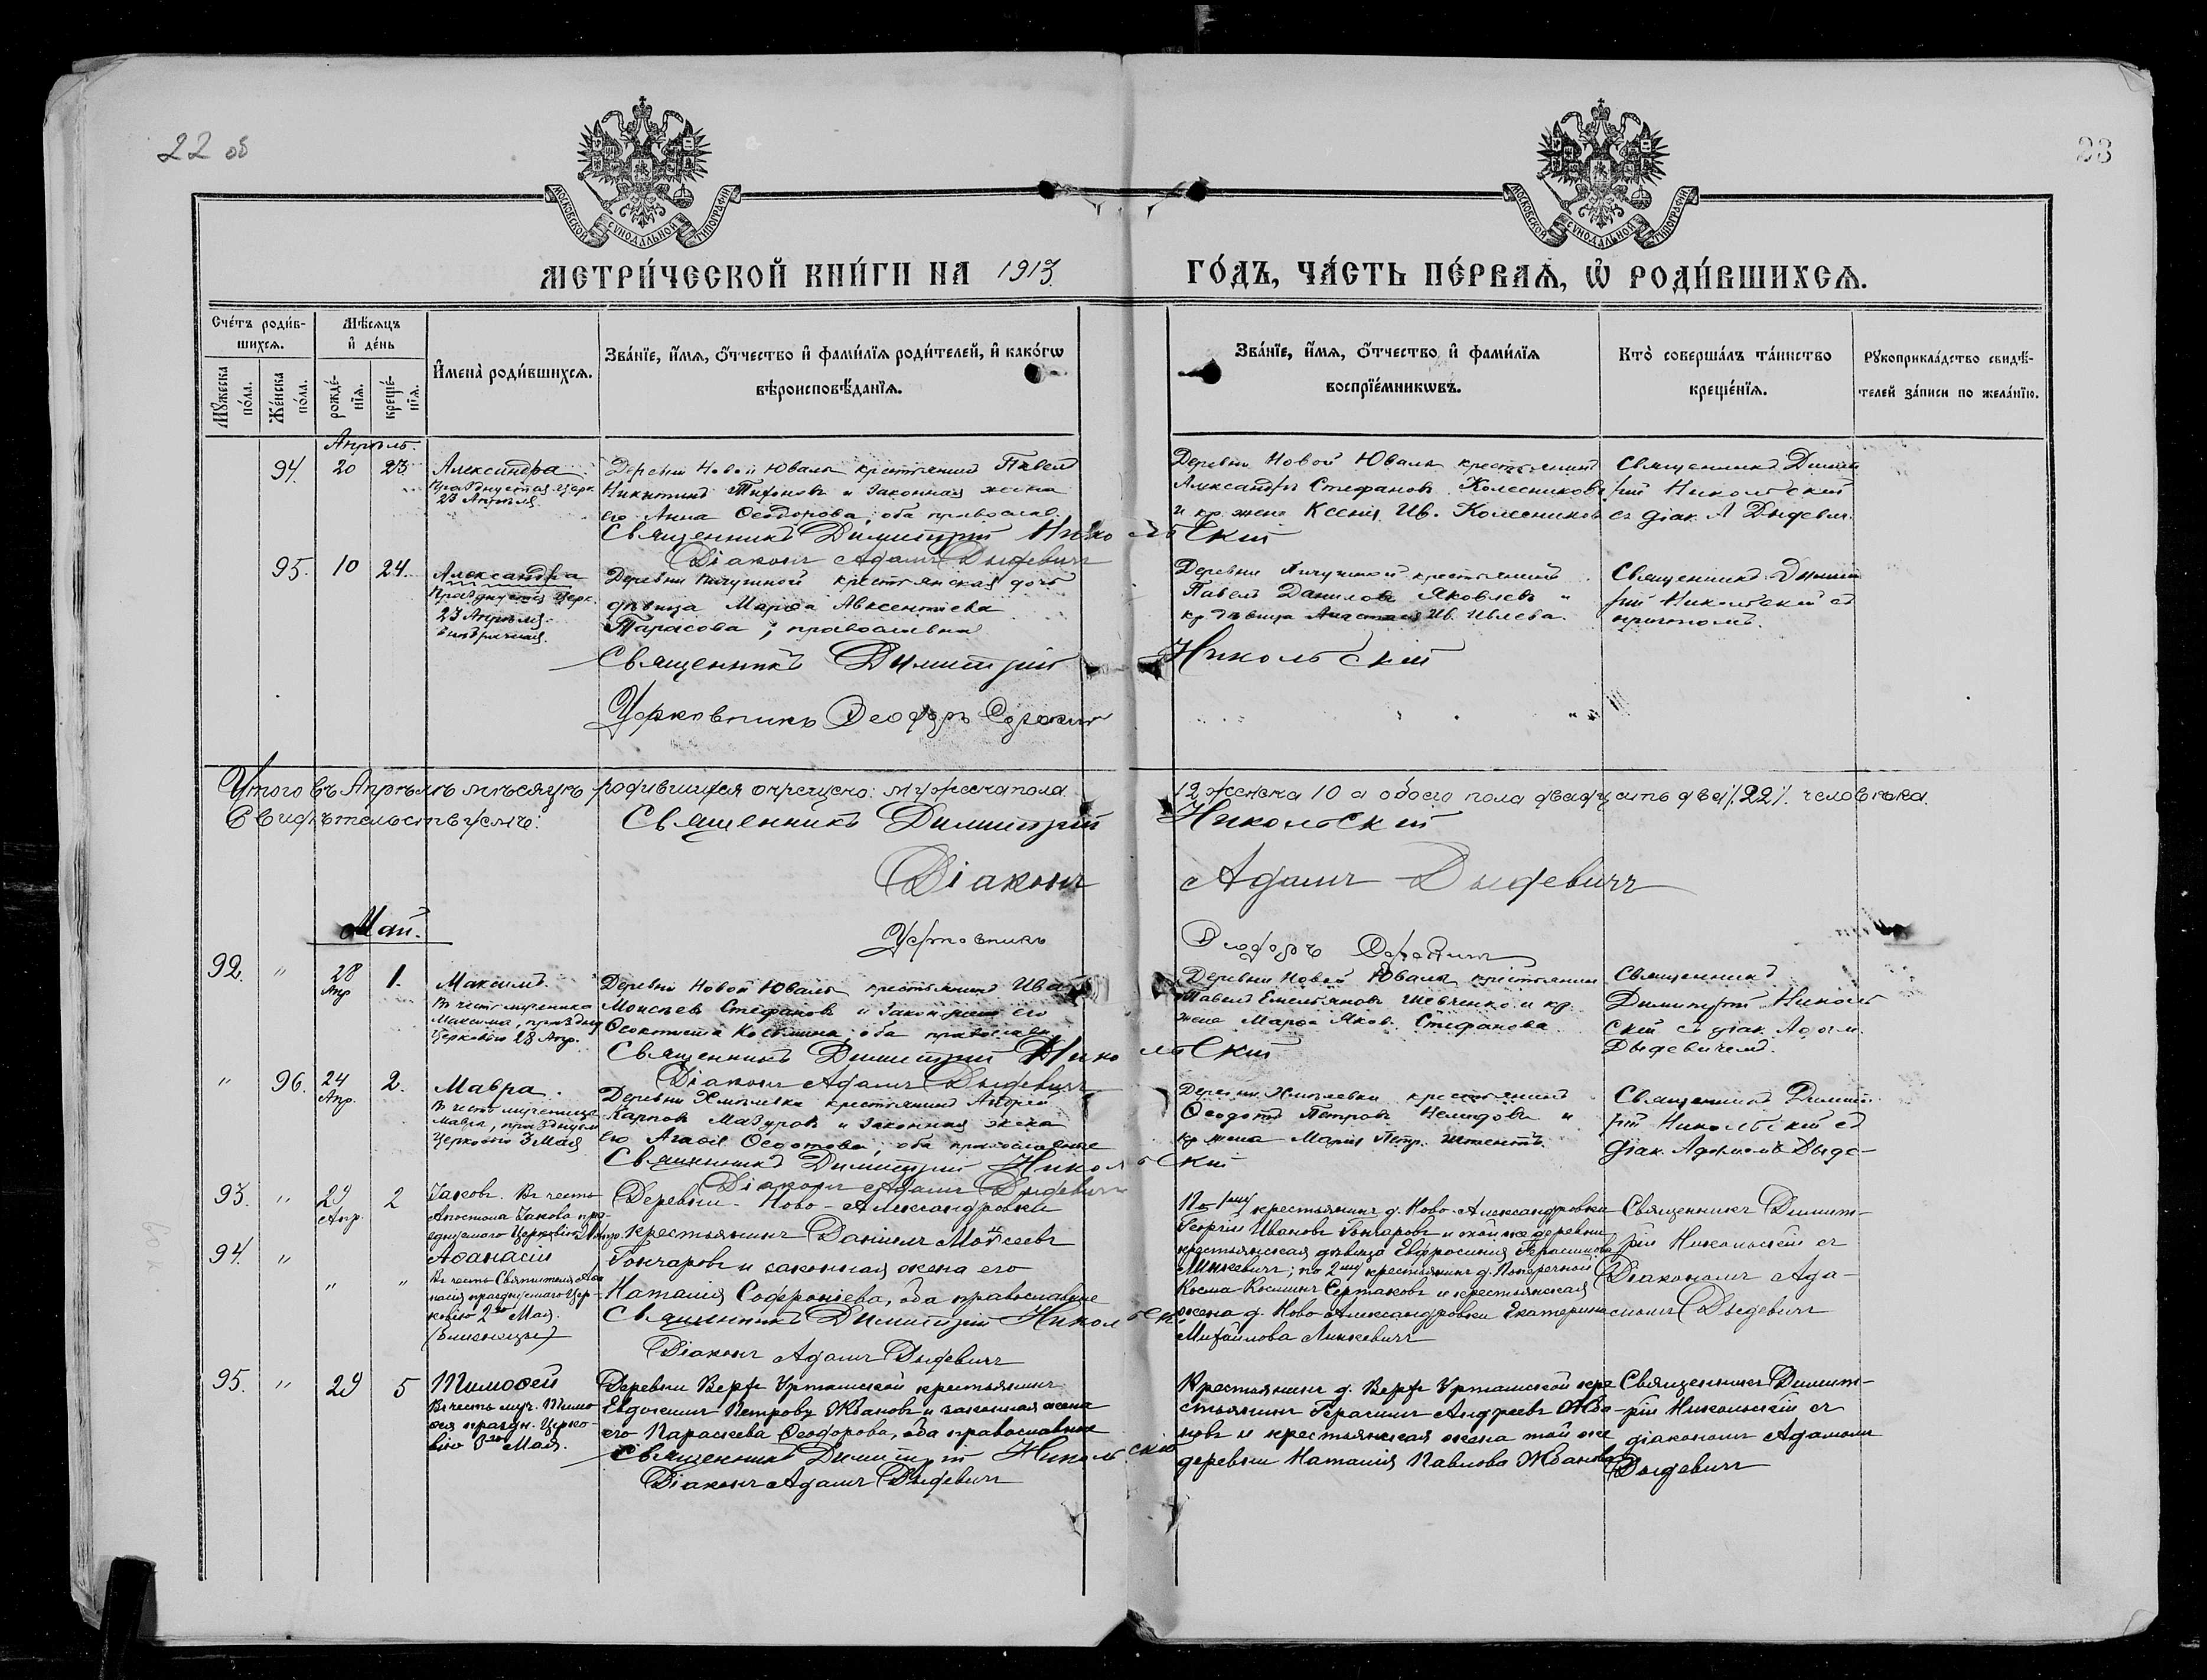 22 об
23
МОСКОВСКОЙ СѴНОДАЛЬНОЙ ТИПОГРАФІИ
МОСКОВСКОЙ СѴНОДАЛЬНОЙ ТИПОГРАФІИ
МЕТРИ́ЧЕСКОЙ КНИ́ГИ НА 1913
ГО́ДЪ, ЧА́СТЬ ПЕ́РВАѦ, Ѡ҆ РОДИ́ВШИХСѦ.
Сче́тъ роди́в-
шихсѧ.
Мꙋ́жеска по́ла.
Же́нска по́ла.
Мѣ́сѧцъ
и҆ де́нь
рожде́-
нїѧ.
креще́-
нїѧ.
И҆мена̀ роди́вшихсѧ.
Зва́нїе, и҆́мѧ, ѻ҆́тчество и҆ фами́лїѧ роди́телей, и҆ како́гѡ
вѣроисповѣ́данїѧ.
Зва́нїе, и҆́мѧ, ѻ҆́тчество и҆ фами́лїѧ
воспрїе́мникѡвъ.
Кто̀ соверша́лъ та́инство
креще́нїѧ.
Рꙋкоприкла́дство свидѣ́-
телей за́писи по жела́нїю.
Апрѣль.
94. 20 23
Александра
Празднуется Церк.
23 Апрѣля
Деревни Новой Ювалы крестьянинъ Павелъ
Никитинъ Тихоновъ и законная жена
его Анна Ѳеодорова, оба православ.
Священникъ Димитрій Никольскій
Діаконъ Адамъ Дыдевичъ
Деревни Новой Ювалы крестьянинъ
Александръ Стефановъ Колесниковъ
и кр. жена Ксенія Ив. Колесникова
Священникъ Димит
рій Никольскій
съ діак. А Дыдевич.
95. 10 24.
Александра
Празднуется Церк.
23 Апрѣля.
Деревни Пичугиной крестьянская дочь
дѣвица Марѳа Авксентіева
Тарасова, православная
Священникъ Димитрій Никольскій
Церковникъ Ѳеодоръ
Деревни Пичугиной крестьянинъ
Павелъ Даниловъ Яковлевъ и
кр. дѣвица Анастасія Ив. Ивлева.
Священникъ Димит
рій Никольскій съ
причтомъ.
Итого въ Апрѣлѣ мѣсяцѣ родившихся окрещено: мужеска пола 12 женска 10 а обоего пола двадцать два /.22/. человѣка.
Свидѣтельствуемъ: Священникъ Димитрій Никольскій
Діаконъ Адамъ Дыдевичъ
Ѳеодоръ
Май.
92. " 28 Апр 1.
Максимъ.
Въ честь мученика
Максима, празднуем
Церковію 28 Апр.
Деревни Новой Ювалы крестьянинъ Иванъ
Моисѣевъ Стефановъ и закон. жена его
Ѳеоктиста Космина, оба православн.
Священникъ Димитрій Никольскій
Діаконъ Адамъ Дыдевичъ
Деревни Новой Ювалы крестьянинъ
Павелъ Емельяновъ Шевченко и кр.
жена Марѳа Яков. Стефанова.
Священникъ
Димитрій Николь
скій съ діак. Адам.
Дыдевичемъ.
" 96. 24 Апр. 2.
Мавра.
Въ честь мученицы
Мавры, празднуем
Церковію 3 Мая
Деревни Хмѣлевки крестьянинъ Андрей
Карповъ Мазуровъ и законная жена
его Агаѳія Ѳедотова, оба православные
Священникъ Димитрій Никольскій
Діаконъ Адамъ Дыдевичъ
Деревни Хмѣлевки крестьянинъ
Ѳеодотъ Петровъ и
кр. жена Марія Петр.
Священникъ Димит
рій Никольскій съ
діак. Адамомъ Дыде-
93. " 29 Апр. 2
Іаковъ. Въ честь
Апостола Іакова пра-
зднуемаго Церковію 30 Апр.
94. " " "
Аѳанасій
Въ честь Святителя Аѳа
насія празднуемаго Цер-
ковію 2го Мая.
(Близнецы)
Деревни Ново-Александровки
крестьянинъ Даніилъ Моисеевъ
Гончаровъ и законная жена его
Наталія Софроніева, оба православные
Священникъ Димитрій Никольскій
Діаконъ Адамъ Дыдевичъ
По 1му крестьянинъ д. Ново-Александровки
Георгій Ивановъ Гончаровъ и той же деревни
крестьянская дѣвица Евфросинія Герасимова
Минкевичъ; по 2му крестьянинъ д. Поперечной
Косма Косминъ Сертаковъ и крестьянская
жена д. Ново-Александровки Екатерина
Михайлова Линкевичъ
Священникъ Димит-
рій Никольскій съ
Діакономъ Ада-
момъ Дыдевичъ
95. " 29 5
Тимоѳей
Въ честь муч. Тимо
ѳея праздн. Церко-
вію 3го Мая.
Деревни Верхъ Уртамской крестьянинъ
Евдокимъ Петровъ Жбановъ и законная жена
его Параскева Ѳеодорова, оба православные
Священникъ Димитрій Никольскій
Діаконъ Адамъ Дыдевичъ
Крестьянинъ д. Верхъ Уртамской кре
стьянинъ Герасимъ Андреевъ Жба-
новъ и крестьянская жена той же
деревни Наталія Павлова Жбанова
Священникъ Димит-
рій Никольскій съ
діакономъ Адамомъ
Дыдевичъ